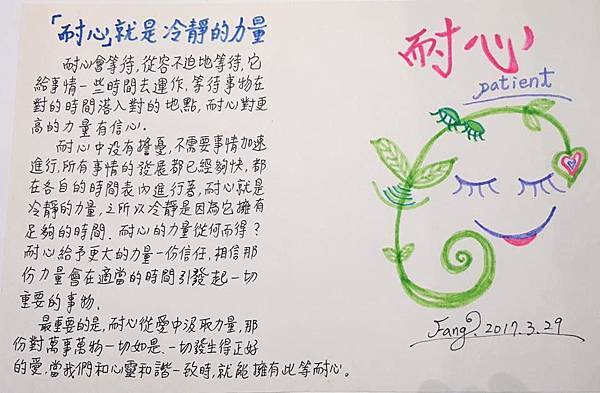 「耐心」就是冷靜的力量
耐心會等待，從容不迫地等待，它
給事情一些時間去運作，等待事物在
對的時間落入對的地點，耐心對更
高的力量有信心．
耐心中没有擔憂，不需要事情加速
進行，所有事情的發展都已經夠快，都
在各自的時間表內進行著，耐心就是
冷靜的力量，之所以冷靜是因為它擁有
足夠的時間．耐心的力量從何而得？
耐心給予更大的力量一份信任，相信那
份力量會在適當的時間引發起一切
重要的事物．
最重要的是，耐心從愛中汲取力量，那
份對萬事萬物一切如是．一切發生得正好
的愛，當我們和心靈和諧一致時，就能擁有此等耐心。
耐心
patient
Fang 2017.3.29